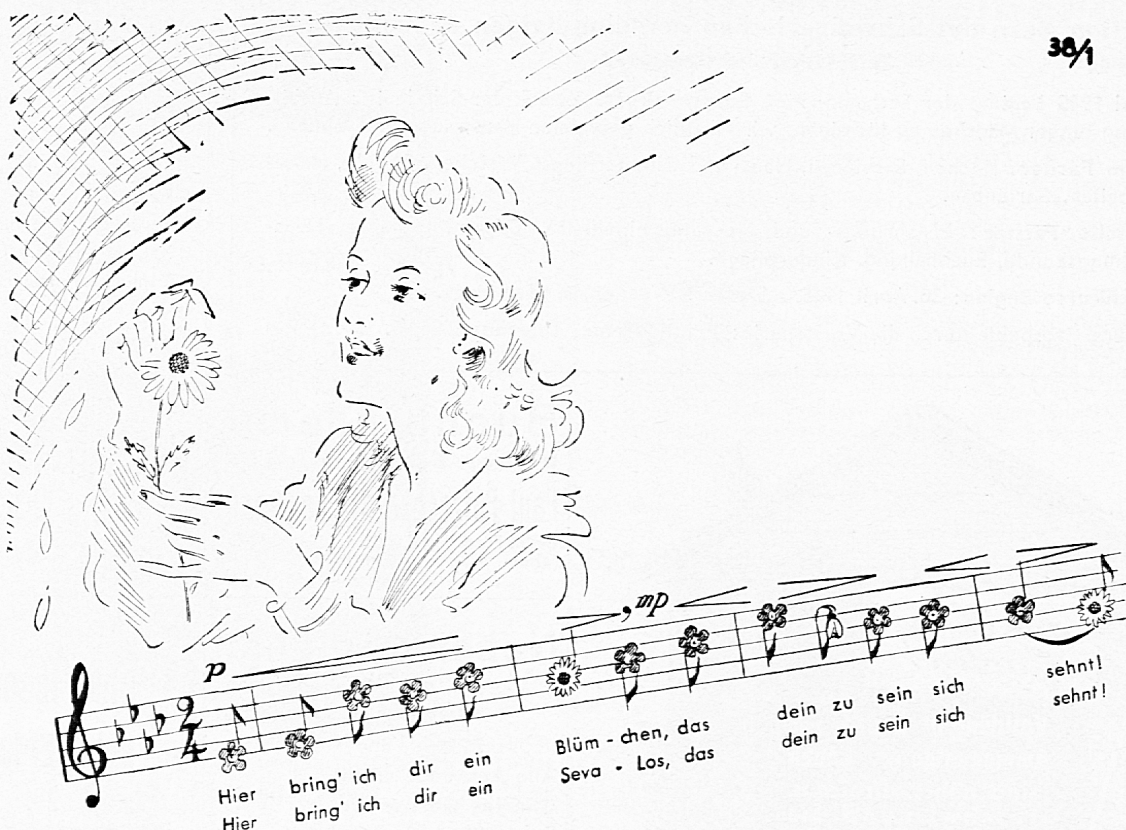 38/1
p
mp
2/4
Hier bring' ich dir ein Blüm - chen, das dein zu sein sich sehnt!
Hier bring' ich dir ein Seva - Los, das dein zu sein sich sehnt!